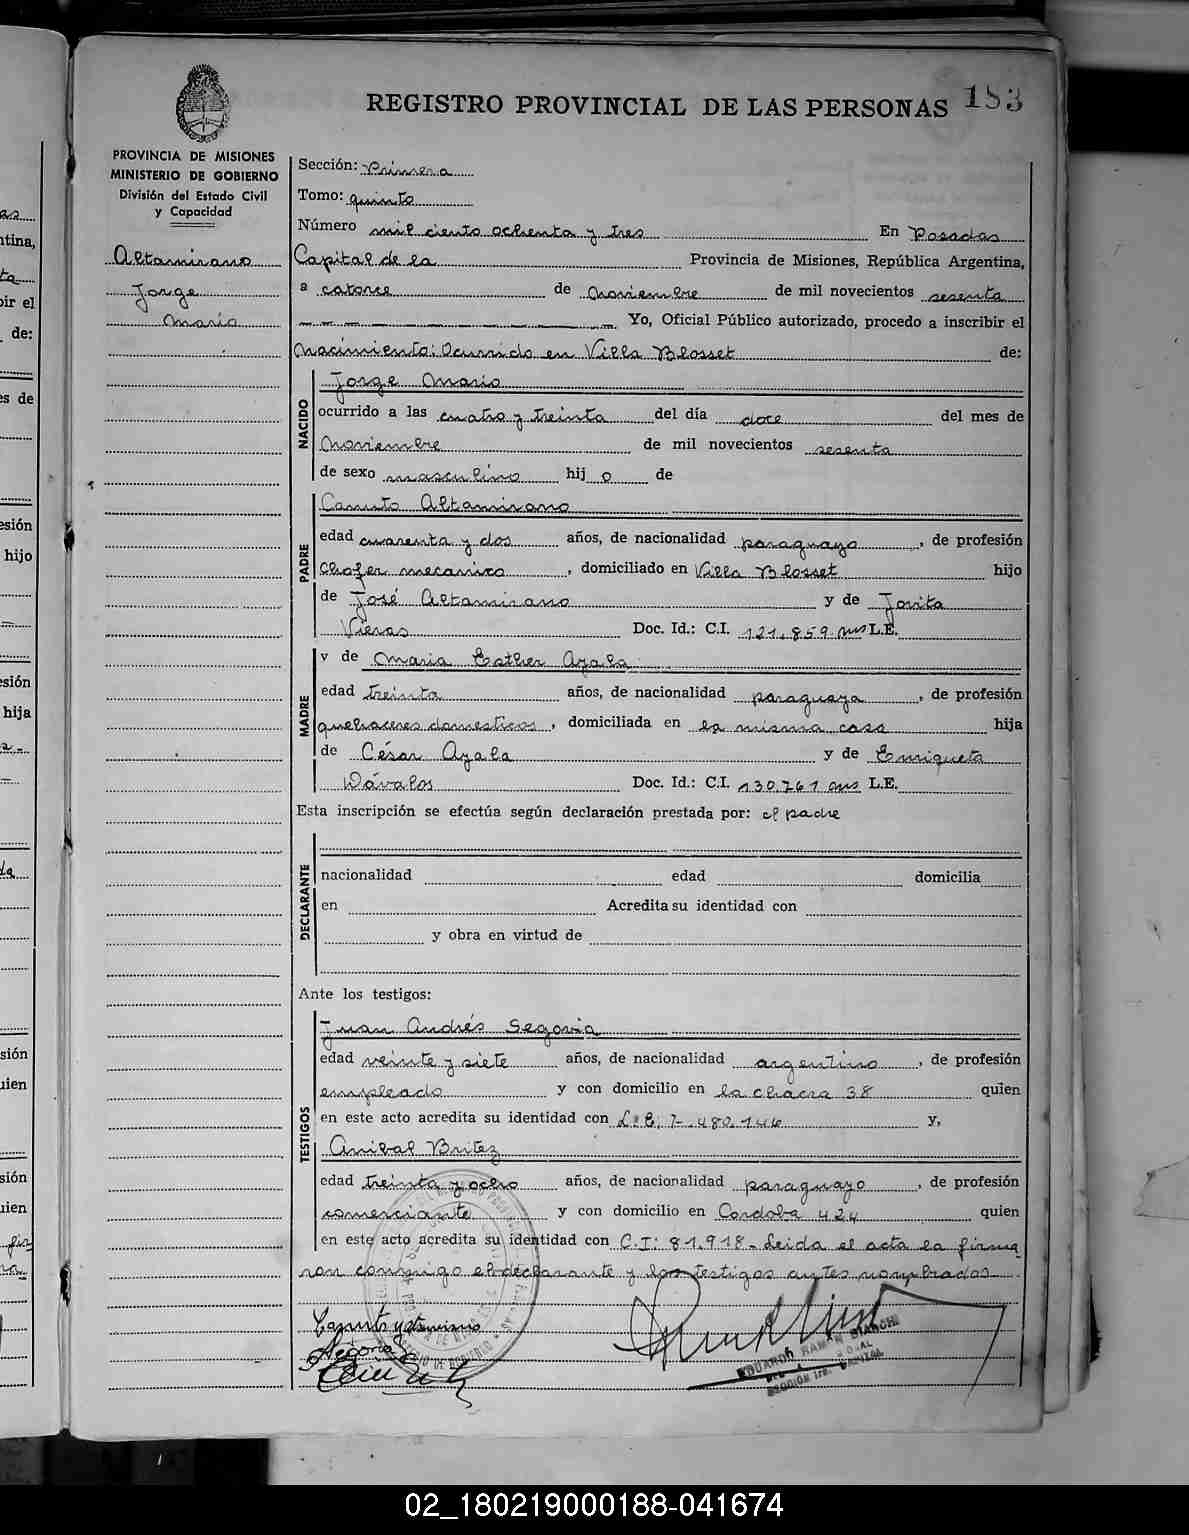 REGISTRO PROVINCIAL DE LAS PERSONAS 183
PROVINCIA DE MISIONES
MINISTERIO DE GOBIERNO
División del Estado Civil
y Capacidad
Altamirano
Jorge
Mario
Sección: Primera
Tomo: quinto
Número mil ciento ochenta y tres En Posadas
Capital de la Provincia de Misiones, República Argentina,
a catorce de Noviembre de mil novecientos sesenta
Yo, Oficial Público autorizado, procedo a inscribir el
Nacimiento: Ocurrido en Villa Blosset de:
NACIDO
Jorge Mario
ocurrido a las cuatro y treinta del día doce del mes de
Noviembre de mil novecientos sesenta
de sexo masculino hij o de
PADRE
Canuto Altamirano
edad cuarenta y dos años, de nacionalidad paraguayo, de profesión
Chofer mecanico, domiciliado en Villa Blosset hijo
de José Altamirano y de Jovita
Vieras Doc. Id.: C.I. 121.859 mns L.E.
MADRE
y de Maria Esther Ayala
edad treinta años, de nacionalidad paraguaya, de profesión
quehaceres domesticos, domiciliada en la misma casa hija
de César Ayala y de Enriqueta
Dávalos Doc. Id.: C.I. 130.761 mns L.E.
Esta inscripción se efectúa según declaración prestada por: el padre
DECLARANTE
nacionalidad edad domicilia
en Acredita su identidad con
y obra en virtud de
Ante los testigos:
TESTIGOS
Juan Andrés Segovia
edad veinte y siete años, de nacionalidad argentino, de profesión
empleado y con domicilio en la chacra 38 quien
en este acto acredita su identidad con L.E. 7.480.146 y,
Anibal Britez
edad treinta y ocho años, de nacionalidad paraguayo, de profesión
comerciante y con domicilio en Cordoba 424 quien
en este acto acredita su identidad con C.I: 81.918 - Leida el acta la firma
ron conmigo el declarante y los testigos antes nombrados
EDUARDO RAMON BIANCHI
SECCIÓN 1ra. CAPITAL
02_180219000188-041674